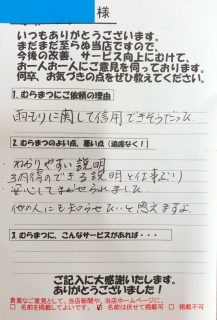 様
いつもありがとうございます。
まだまだ至らぬ当店ですので、
今後の改善、サービス向上にむけて、
お一人お一人にご意見を伺っております。
何卒、お気づきの点をぜひ教えてください。
1.むらまつにご依頼の理由
雨もりに関して信用できそうだった
2.むらまつのよい点、悪い点（遠慮なく！）
・わかりやすい説明
・納得のできる説明と仕事ぶり
・安心してまかせられました
他の人にも知らせたいと思えますよ
3.むらまつに、こんなサービスがあれば・・・
ご記入に大感謝いたします。
ありがとうございました！
貴重なご意見として、当店新聞や、当店ホームページに、
□ 名前を掲載してよいです。 □ 名前は伏せて掲載可 □ 掲載不可